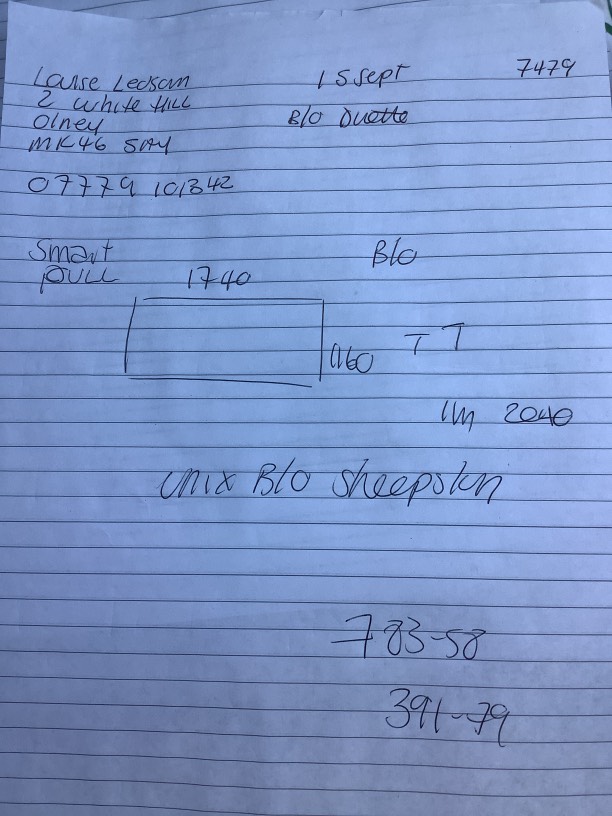 Louise Ledsam
2 White Hill
Olney
MK46 5AY
07779 101342
15 Sept
B/O Duette
7479
Smart
PULL
B/O
1740
1160
T T
IM 2040
unix B/O sheepskn
783-58
391-79